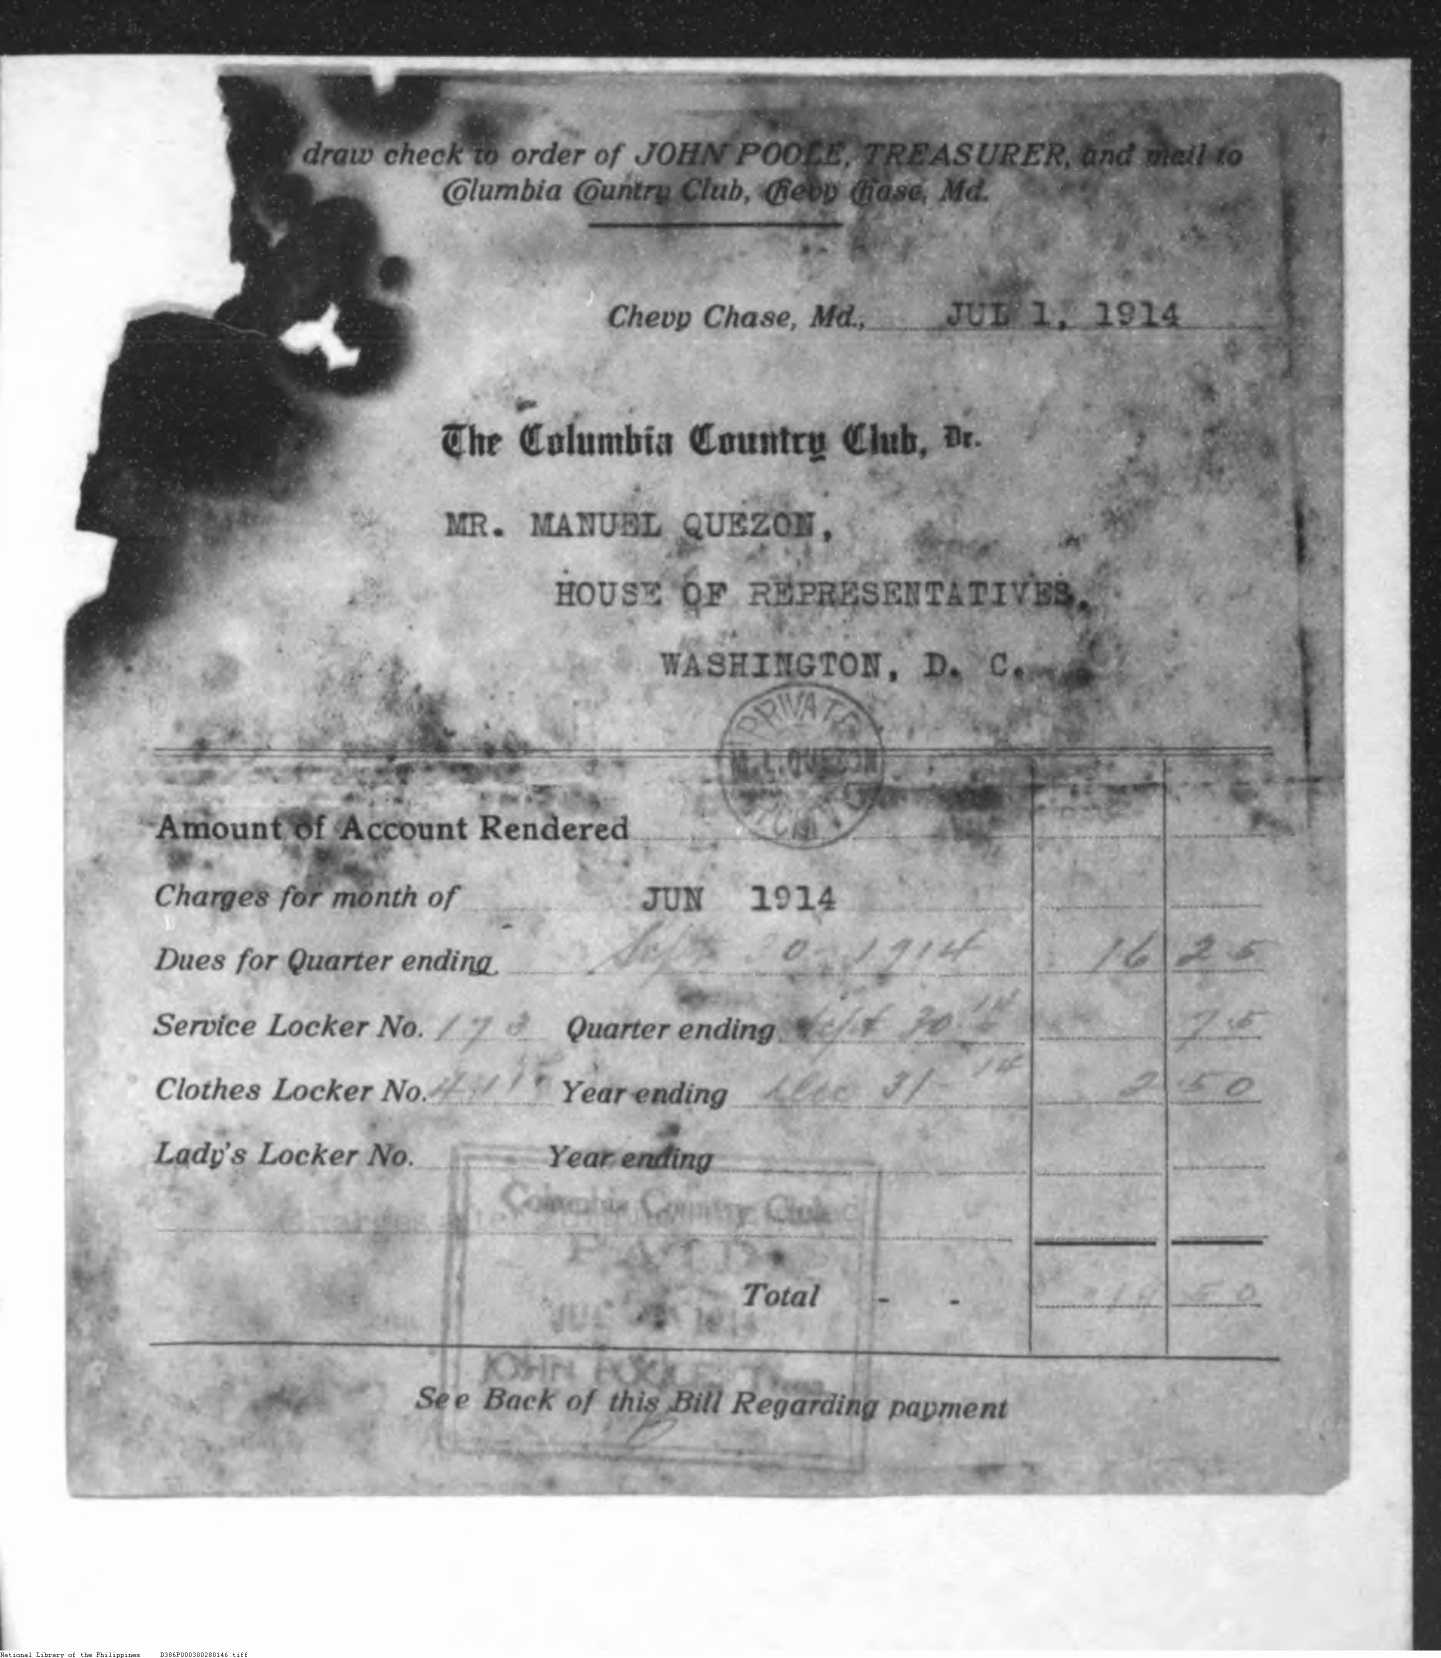 draw check to order of JOHN POOLE, TREASURER, and mail to
Columbia Country Club, Chevy Chase, Md.
Chevy Chase, Md., JUL 1, 1914
The Columbia Country Club, Dr.
MR. MANUEL QUEZON,
HOUSE OF REPRESENTATIVES,
WASHINGTON, D. C.
PRIVATE
M.L.QUEZON
Amount of Account Rendered
Charges for month of JUN 1914
Dues for Quarter ending Sept 30 1914 16 25
Service Locker No. 173 Quarter ending Sept 30 14 75
Clothes Locker No. Year ending Dec 31 14 2 50
Lady's Locker No. Year ending
Columbia Country Club
PAID
Total - - 50
JUL 1914
JOHN POOLE, Treas.
See Back of this Bill Regarding payment
National Library of the Philippines D386P000300280146.tiff